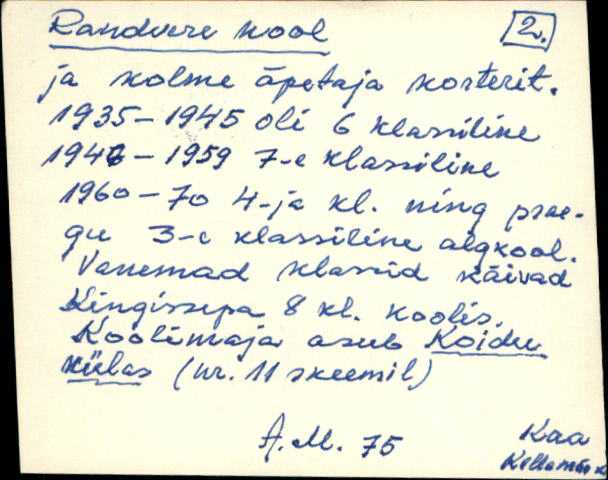 Randvere kool
2.
ja kolme õpetaja korterit.
1935-1945 oli 6 klassiline
1946-1959 7-e klassiline
1960-70 4-ja kl. ning prae-
gu 3-e klassiline algkool.
Vanemad klassid käivad
Kingissepa 8 kl. koolis.
Koolimaja asub Koidu
külas (nr. 11 skeemil)
A.M. 75
Kaa